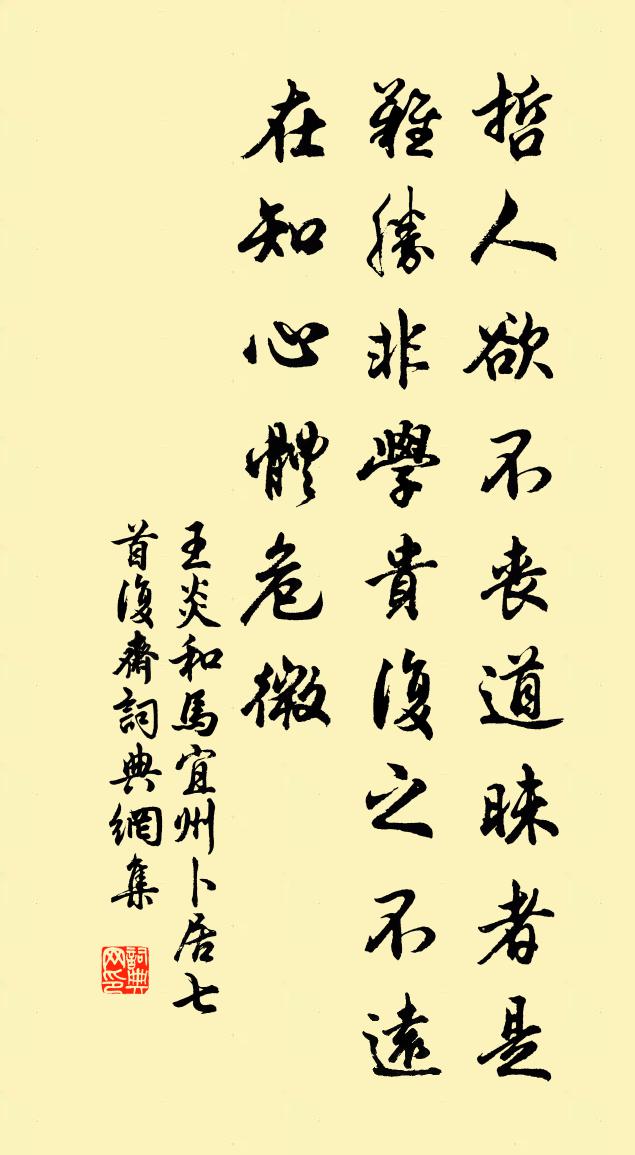 哲人欲不丧道昧者是
難勝非學貴復之不遠
在知心體危微
王炎和馬宜州卜居七
首復齋詞典網集
詞典
网印